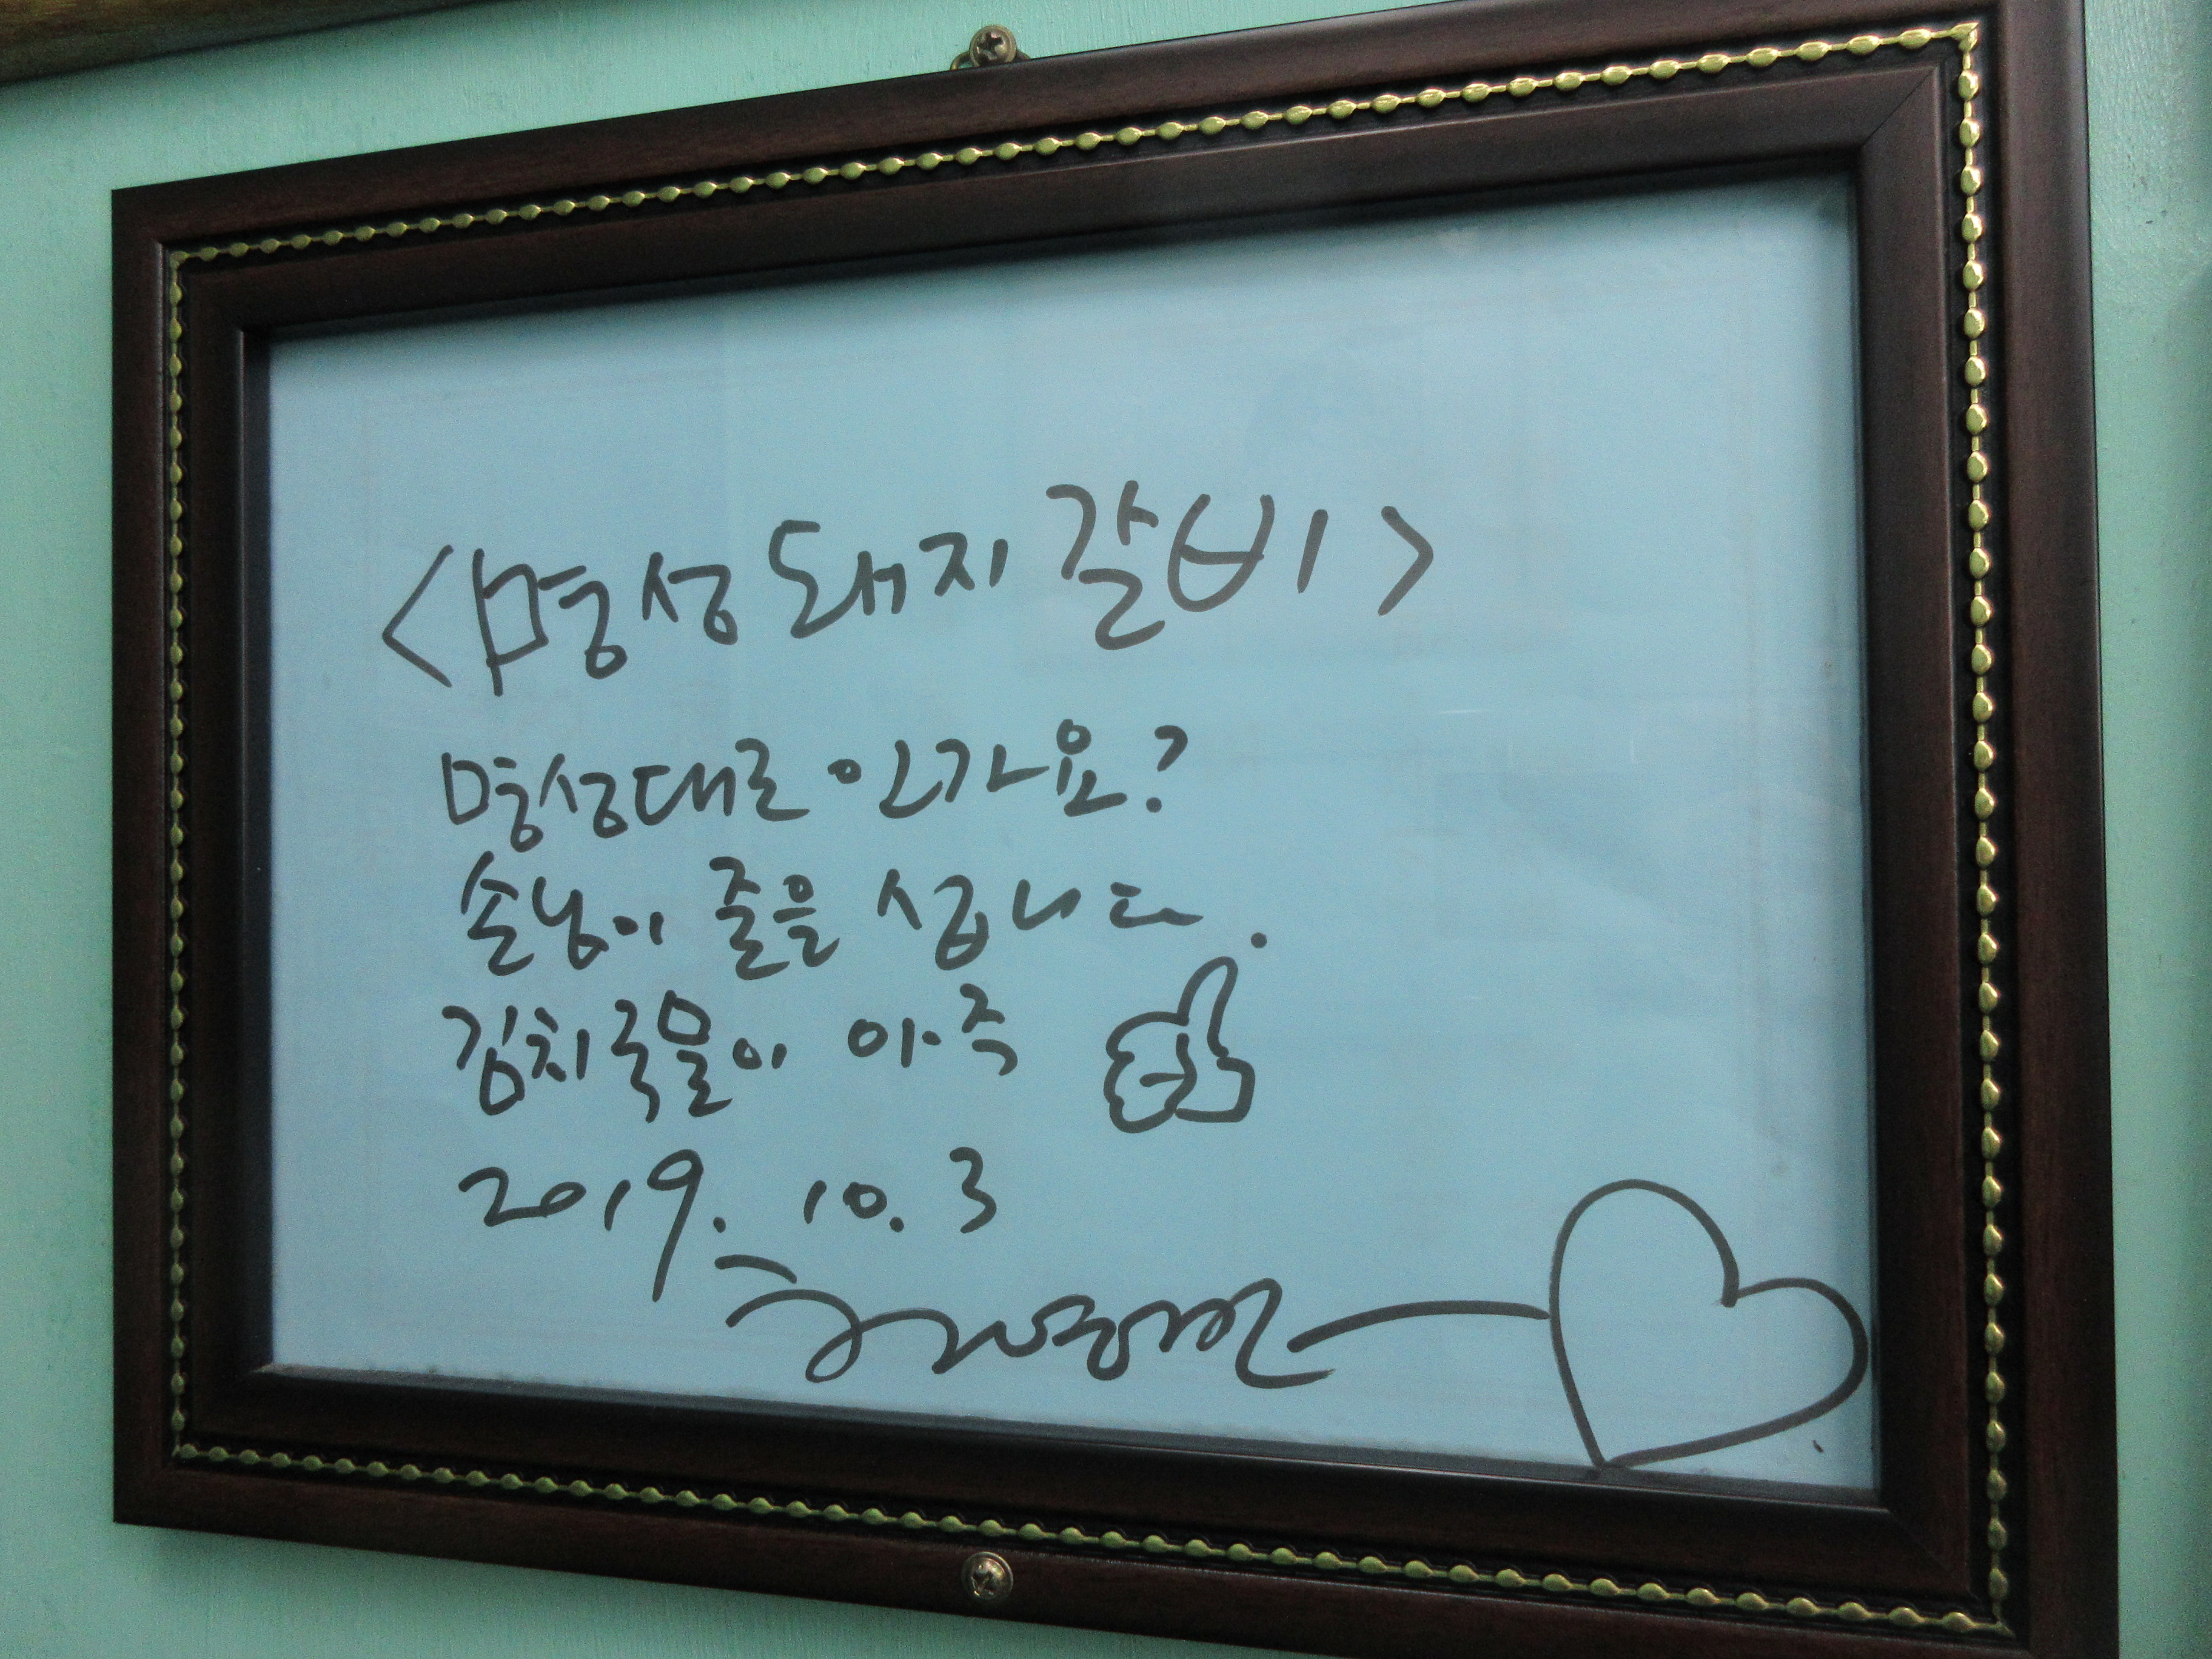 <명성돼지갈비>
명성대로 인가요?
손님이 줄을 섭니다.
김치국물이 아주
2019. 10. 3